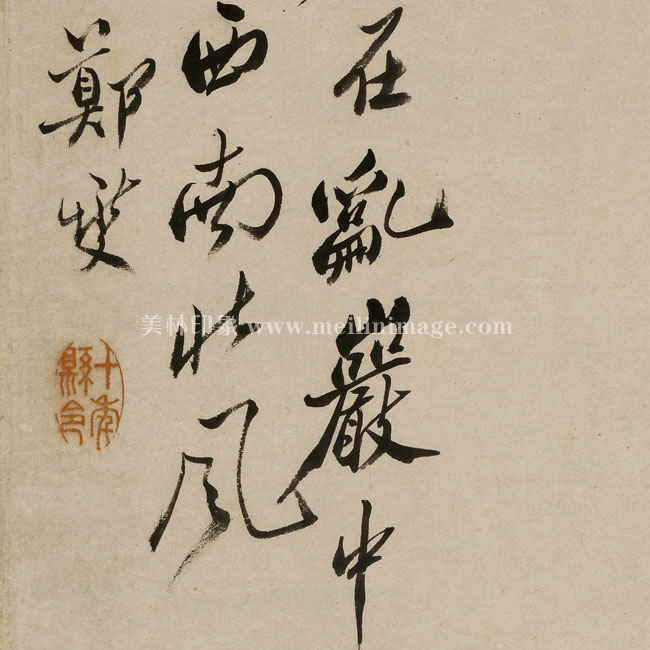 在亂巖中
西南北風
鄭燮
十年縣令
美林印象 www.meilinimage.com